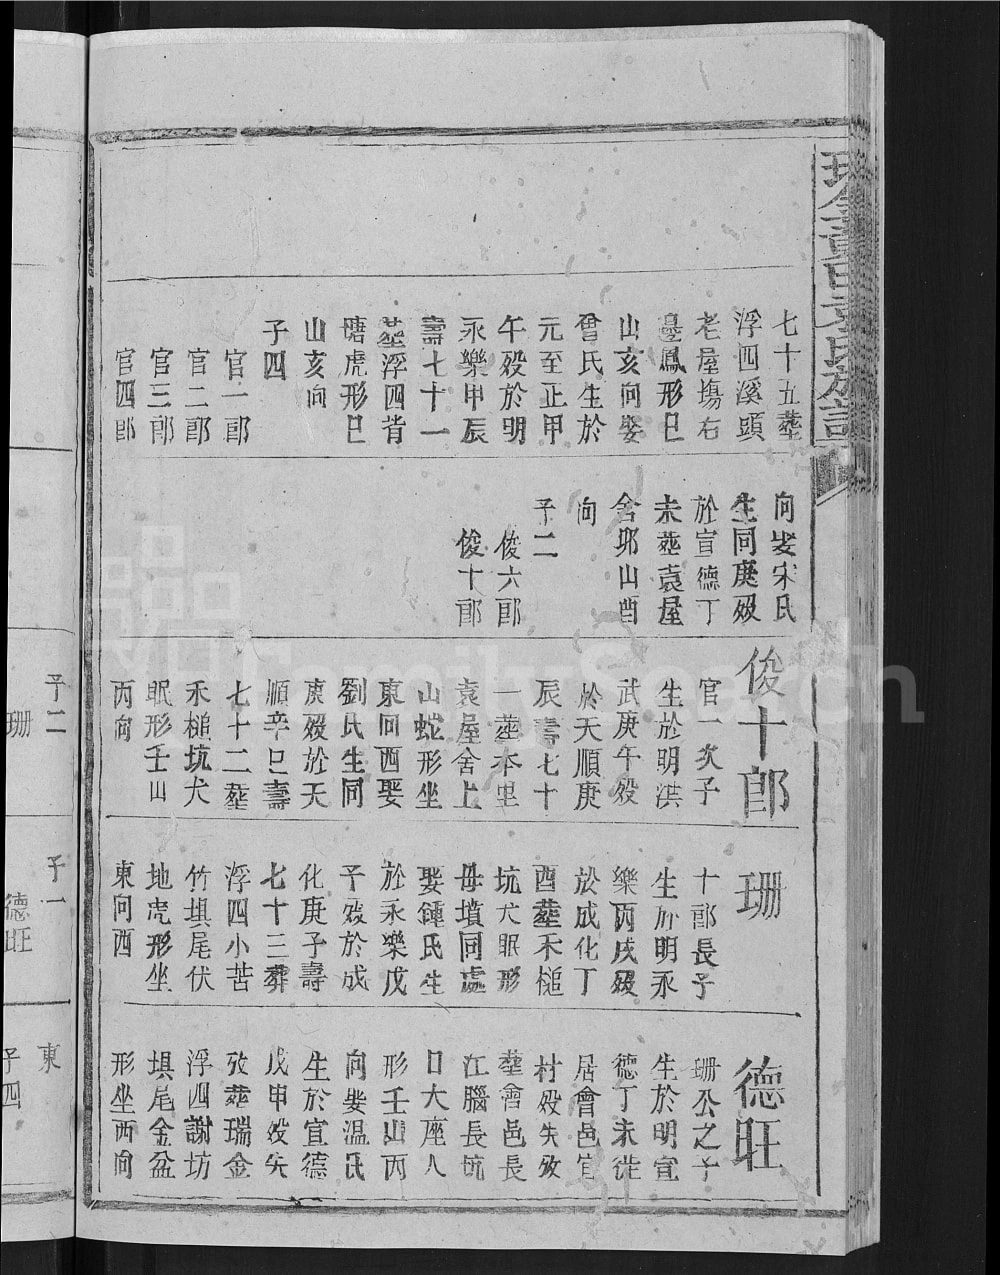 七十五塟
浮四溪頭
老屋塲右
邉鳳形巳
山亥向娶
曾氏生於
元至正甲
午殁於明
永樂甲辰
壽七十一
塟浮四背
塘虎形巳
山亥向
子四
官一郎
官二郎
官三郎
官四郎
向娶宋氏
生同庚殁
於宣德丁
未塟袁屋
舍邜山酉
向
子二
俊六郎
俊十郎
俊十郎
官一次子
生於明洪
武庚午殁
於天順庚
辰壽七十
一塟本里
袁屋舍上
山蛇形坐
東向西娶
劉氏生同
庚殁於天
順辛巳壽
七十二塟
禾槌坑犬
眠形壬山
丙向
珊
十郎長子
生於明永
樂丙戌殁
於成化丁
酉塟禾槌
坑犬眠形
母墳同處
娶鍾氏生
於永樂戊
子殁於成
化庚子壽
七十三葬
浮四小苦
竹垻尾伏
地虎形坐
東向西
德旺
珊公之子
生於明宣
德丁未徙
居會邑官
村殁失攷
塟會邑長
江腦長坑
口大座人
形壬山丙
向娶温氏
生於宣德
戊申殁失
攷塟瑞金
浮四謝坊
垻尾金盆
形坐西向
子二
珊
子一
德旺
東
子四
FamilySearch